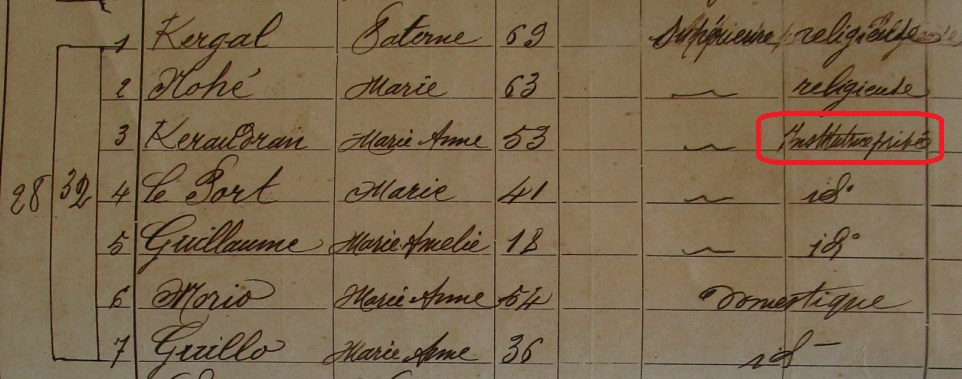 1 Kergal Paterne 69 Supérieure religieuse
2 Nohé Marie 63 religieuse
28 32 3 Keraudran Marie Anne 53 Institutrice privée
4 Le Port Marie 41 id°
5 Guillaume Marie Amelie 18 id°
6 Morio Marie Anne 54 Domestique
7 Guillo Marie Anne 36 id